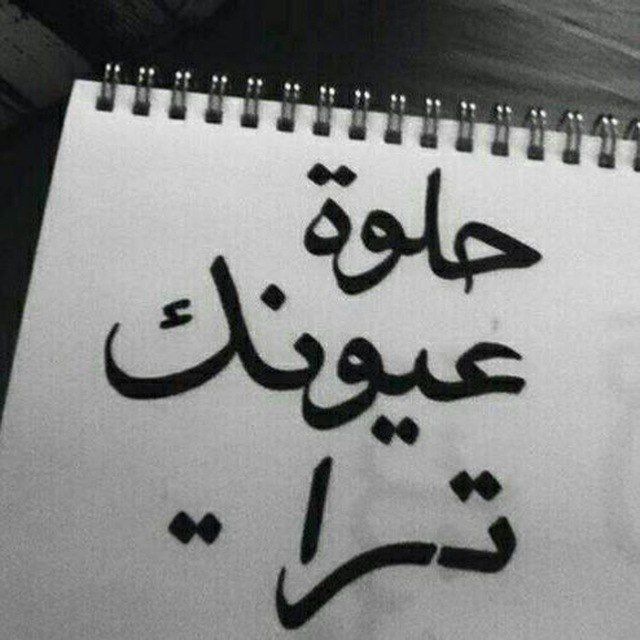 حلوة
عيونك
ترا